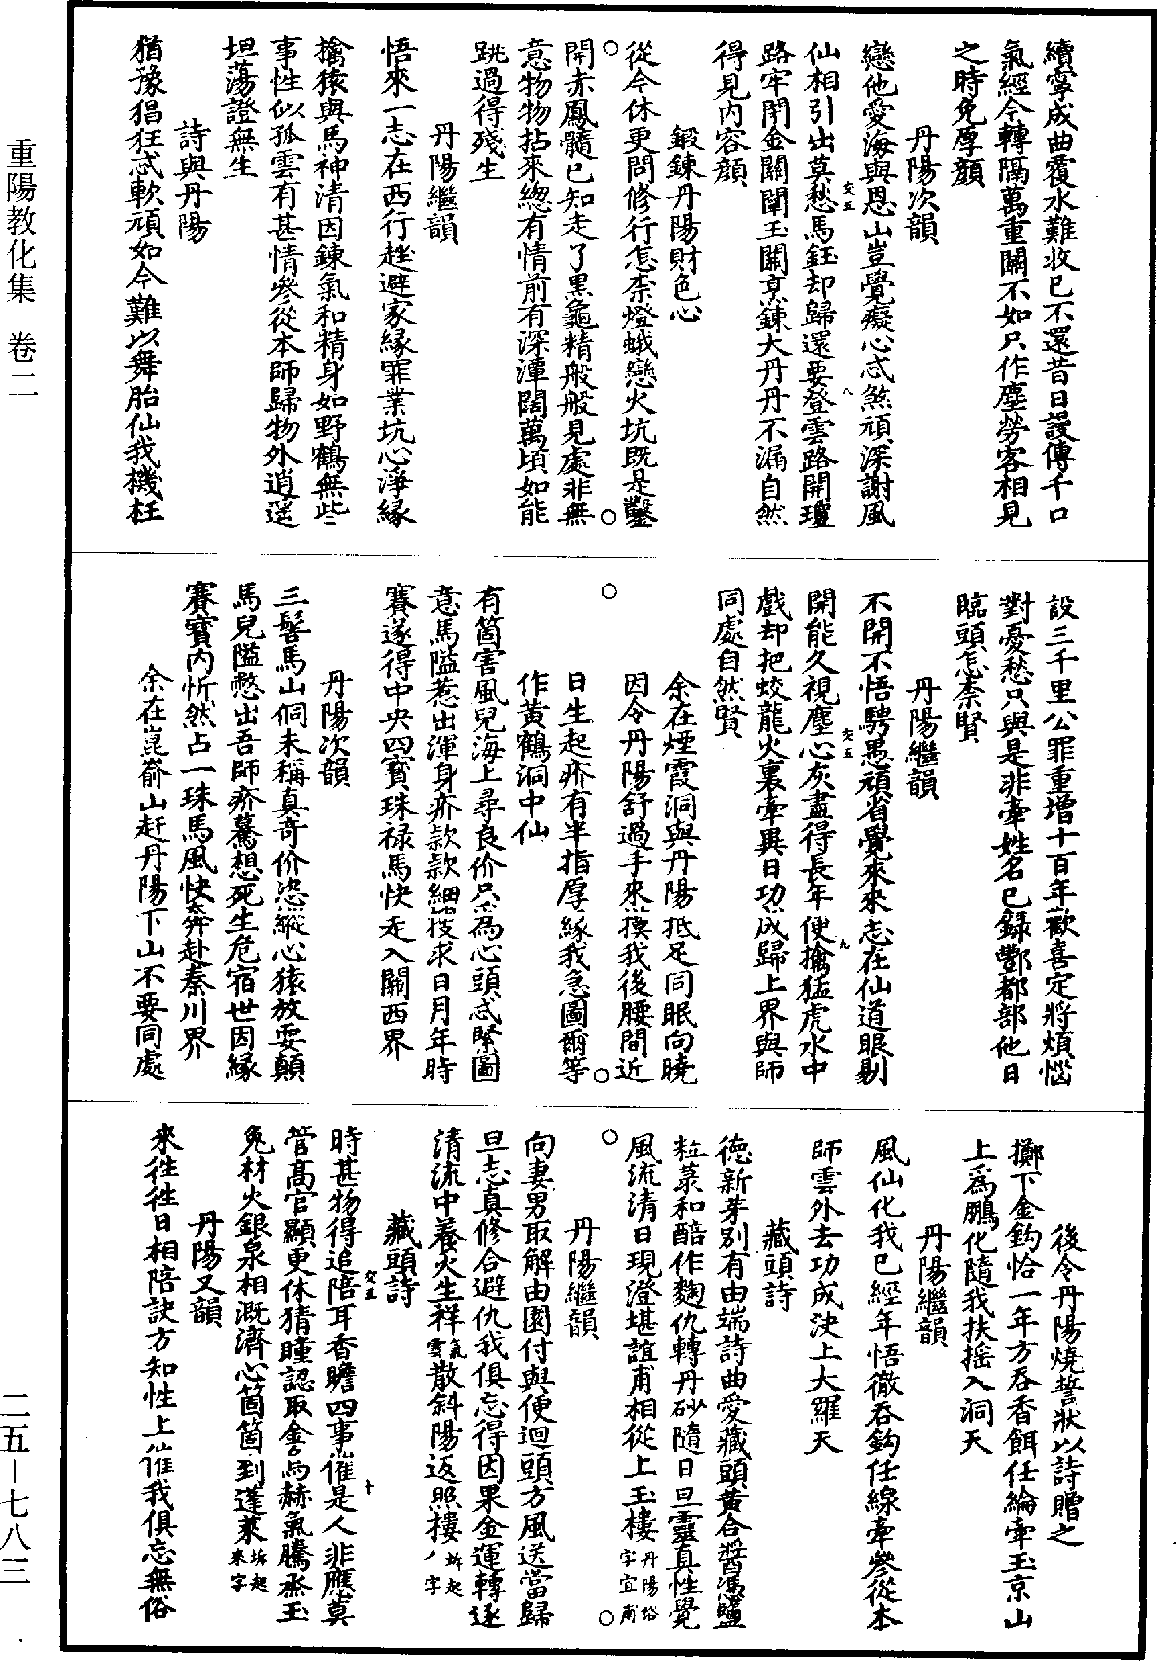 續寧成曲覆水難收已不還昔日謾傳千口
氣經今轉隔萬重關不如只作塵勞客相見
之時免厚顏
丹陽次韻
戀他愛海與恩山豈覺癡心忒煞頑深謝風
仙相引出莫愁馬鈺却歸還要登雲路開瓊
路牢閉金關闡玉關烹鍊大丹丹不漏自然
得見內容顏
鍛鍊丹陽財色心
從今休更問修行怎柰燈蛾戀火坑既是鑿
開赤鳳髓已知走了黑龜精般般見處非無
意物物拈來緫有情前有深潭闊萬頃如能
跳過得殘生
丹陽繼韻
悟來一志在西行趖避家緣罪業坑心淨緣
擒猿與馬神清因鍊氣和精身如野鶴無些
事性似孤雲有甚情參從本師歸物外逍遥
坦蕩證無生
詩與丹陽
猶豫猖狂忒軟頑如今難以舞胎仙我機枉
設三千里公罪重增十百年歡喜定將煩惱
對憂愁只與是非牽姓名已録酆都部他日
臨頭怎柰賢
丹陽繼韻
不開不悟騁愚頑省覺來來志在仙道眼剔
開能久視塵心灰盡得長年便擒猛虎水中
戲却把蛟龍火裏牽異日功成歸上界與師
同處自然賢
余在煙霞洞與丹陽抵足同眠向曉
因令丹陽舒過手來摸我後腰間近
日生起疥有半指厚緣我急圖爾等
作黃鶴洞中仙
有箇害風兒海上尋良价只爲心頭忒緊圖
意馬隘惹出渾身疥款款細搜求日月年時
賽遂得中央四寳珠禄馬快走入關西界
丹陽次韻
三髻馬山侗未稱真奇价恣縱心猿放耍顛
馬兒隘憋出吾師疥驀想死生危宿世因緣
賽寳内忻然占一珠馬風快奔赴秦川界
余在崑嵛山赶丹陽下山不要同處
後令丹陽燒誓狀以詩贈之
擲下金鈎恰一年方吞香餌任綸牽玉京山
上爲鵬化隨我扶搖入洞天
丹陽繼韻
風仙化我已經年悟徹吞鈎任線牽參從本
師雲外去功成決上大羅天
藏頭詩
德新芽别有由端詩曲愛藏頭黃合醬馮鱸
粒菉和醅作麴仇轉丹砂隨日旦靈真性覺
風流清日現澄堪誼甫相從上玉樓丹陽俗字宜甫
丹陽繼韻
向妻男取解由園付與便迴頭方風送當歸
旦志真修合避仇我俱忘得因果金運轉逐
清流中養火生祥氣雲散斜陽返照摟拆起ノ字
藏頭詩
時甚物得追陪耳香瞻四事催是人非應莫
管高官顯更休猜瞳認取金烏赫氣騰烝玉
兔材火銀泉相溉濟心箇箇到蓬萊拆起來字
丹陽又韻
來往徃日相陪訣方知性上催我俱忘無俗
重陽教化集　卷二
二五－七八三